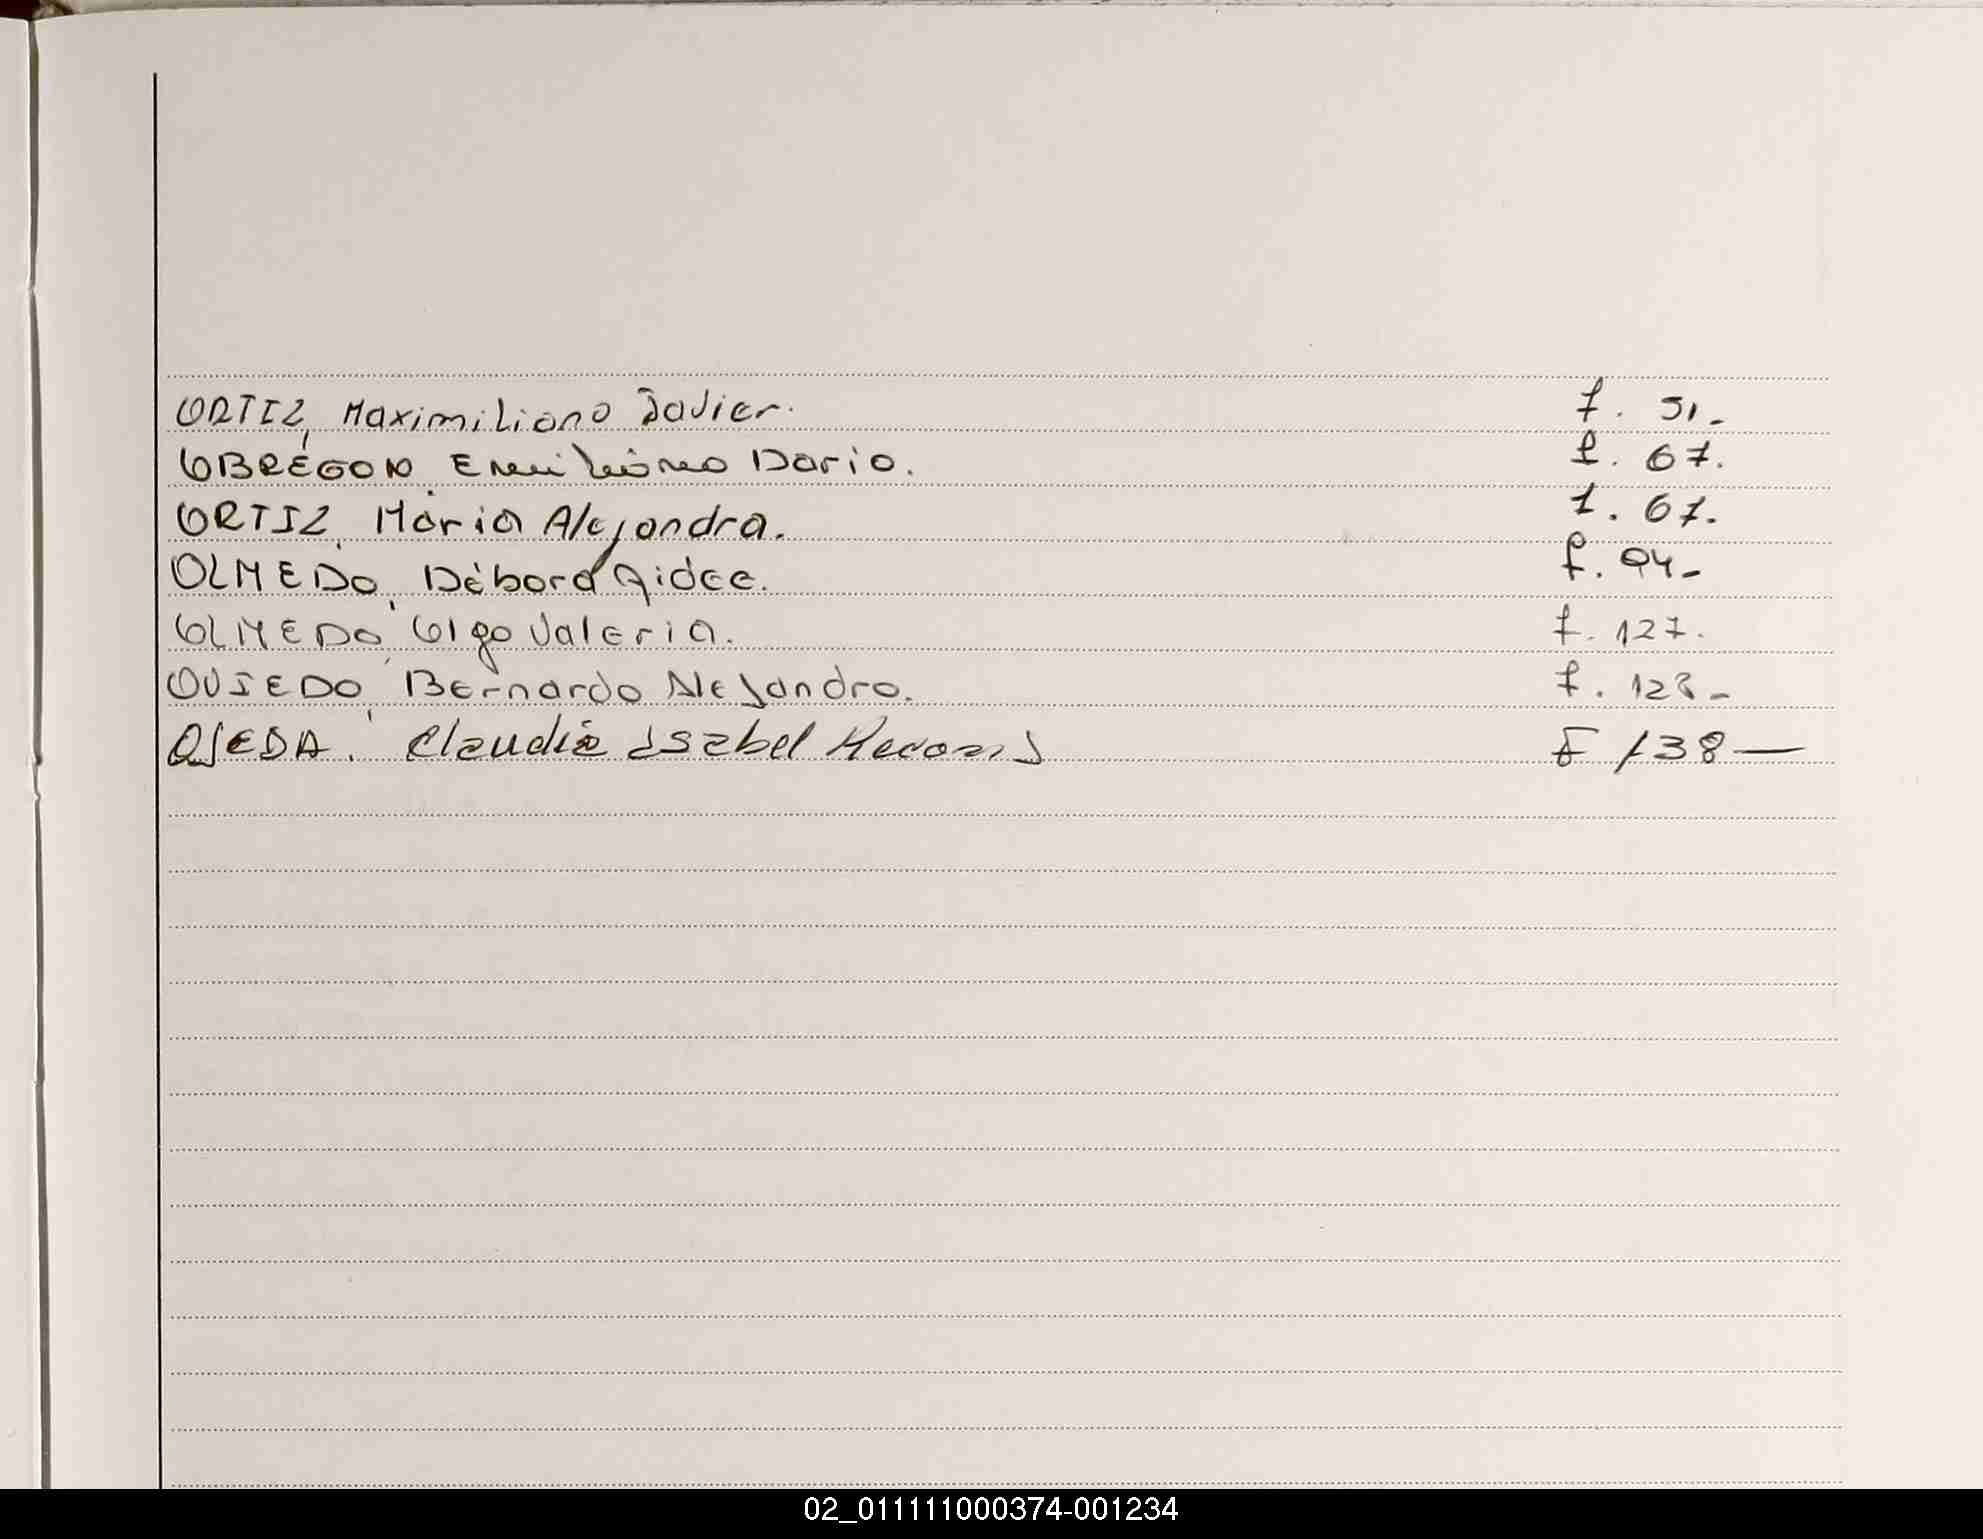 ORTIZ, Maximiliano Javier. f. 51_
OBREGON, Emiliano Dario. f. 67.
ORTIZ, Maria Alejandra. f. 67.
OLMEDO, Débora Aidee. f. 94_
OLMEDO, Olga Valeria. f. 127.
OVIEDO, Bernardo Alejandro. f. 128_
OJEDA, Claudia Isabel F 138—
02_011111000374-001234